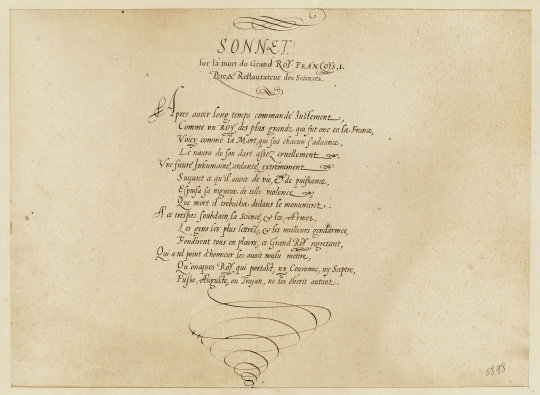 SONNET.
sur la mort du Grand ROY FRANÇOYS. I.
Pere & Restaurateur des Sciences.
Apres avoir long temps commandé Justement,
Comme un ROY des plus grandz qui fut onc en la France,
Voicy comme la Mort, qui sus chacun s'advance,
Le navra de son dart assez cruellement
Une fievre Inhumaine, ardante, extremement
Sucçant ce qu'il avoit de vie, & de puissance,
Espuisa sa vigueur de telle violence
Que mort il trebucha dedans le monument.
A ce trespas soubdain, la Science, & les Armes,
Les gens les plus lettrez, & les meilleurs gendarmes,
Fondirent tous en pleurs, ce Grand ROY regretant,
Qui a tel point d'honneur les avoit voulu mettre,
Qu'onques ROY, qui portast, ny Couronne, ny Sceptre,
Fusse Auguste, ou Trajan, ne les cherit autant.
5898